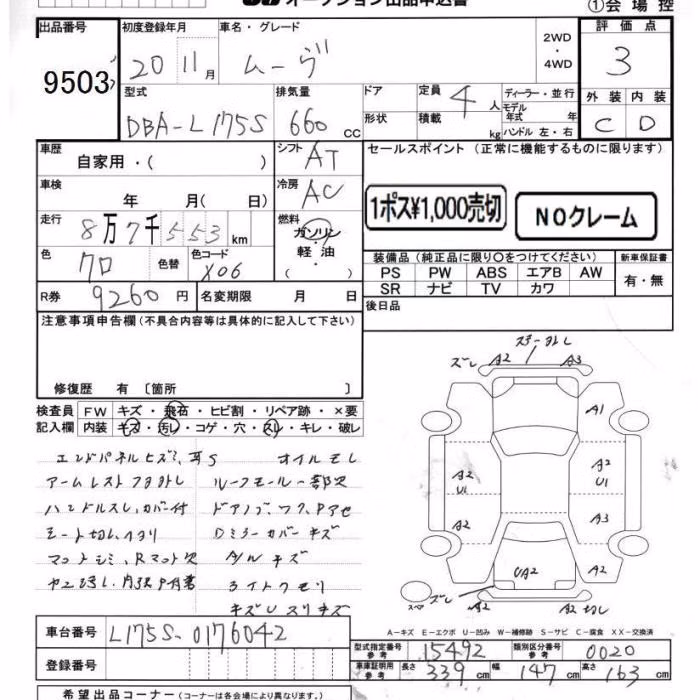 オークション出品申込書
①会場控
出品番号
9503
初度登録年月
20 11月
車名・グレード
ムーヴ
2WD
・
4WD
評価点
3
型式
DBA-L175S
排気量
660 cc
ドア
形状
定員
4人
積載
kg
ディーラー・並行
モデル年式 年
ハンドル 左・右
外装 内装
C D
車歴
自家用・( )
シフト
AT
セールスポイント (正常に機能するものに限ります)
車検
年 月( 日)
冷房
AC
1ポス¥1,000売切
NOクレーム
走行
8万7千553km
燃料
ガソリン
・
軽油
( ・ )
色
クロ
色替
色コード
X06
装備品 (純正品に限り○をつけてください)
新車保証書
PS PW ABS エアB AW
有・無
SR ナビ TV カワ
R券
9260円
名変期限 月 日
後日品
注意事項申告欄 (不具合内容等は具体的に記入して下さい)
修復歴 有 〔箇所 〕
検査員 FW キズ・飛石・ヒビ割・リペア跡・×要
記入欄 内装 キズ・汚レ・コゲ・穴・スレ・キレ・破レ
オイルモレ
ルーフモール一部欠
ハンドルスレ、カバー付
Dミラーカバーキズ
A/Wキズ
ライトクモリ
ズレ A2 A3
A1
A2 U1
A2 U1
A2
A3
UA2
A2
ズレ A2 A2
A-キズ E-エクボ U-凹み W-補修跡 S-サビ C-腐食 XX-交換済
車台番号
L175S-0176042
登録番号
型式指定番号 参考
15492
類別区分番号 参考
0020
車庫証明用 参考
長さ 339cm
幅 147cm
高さ 163cm
希望出品コーナー (コーナーは各会場により異なります。)